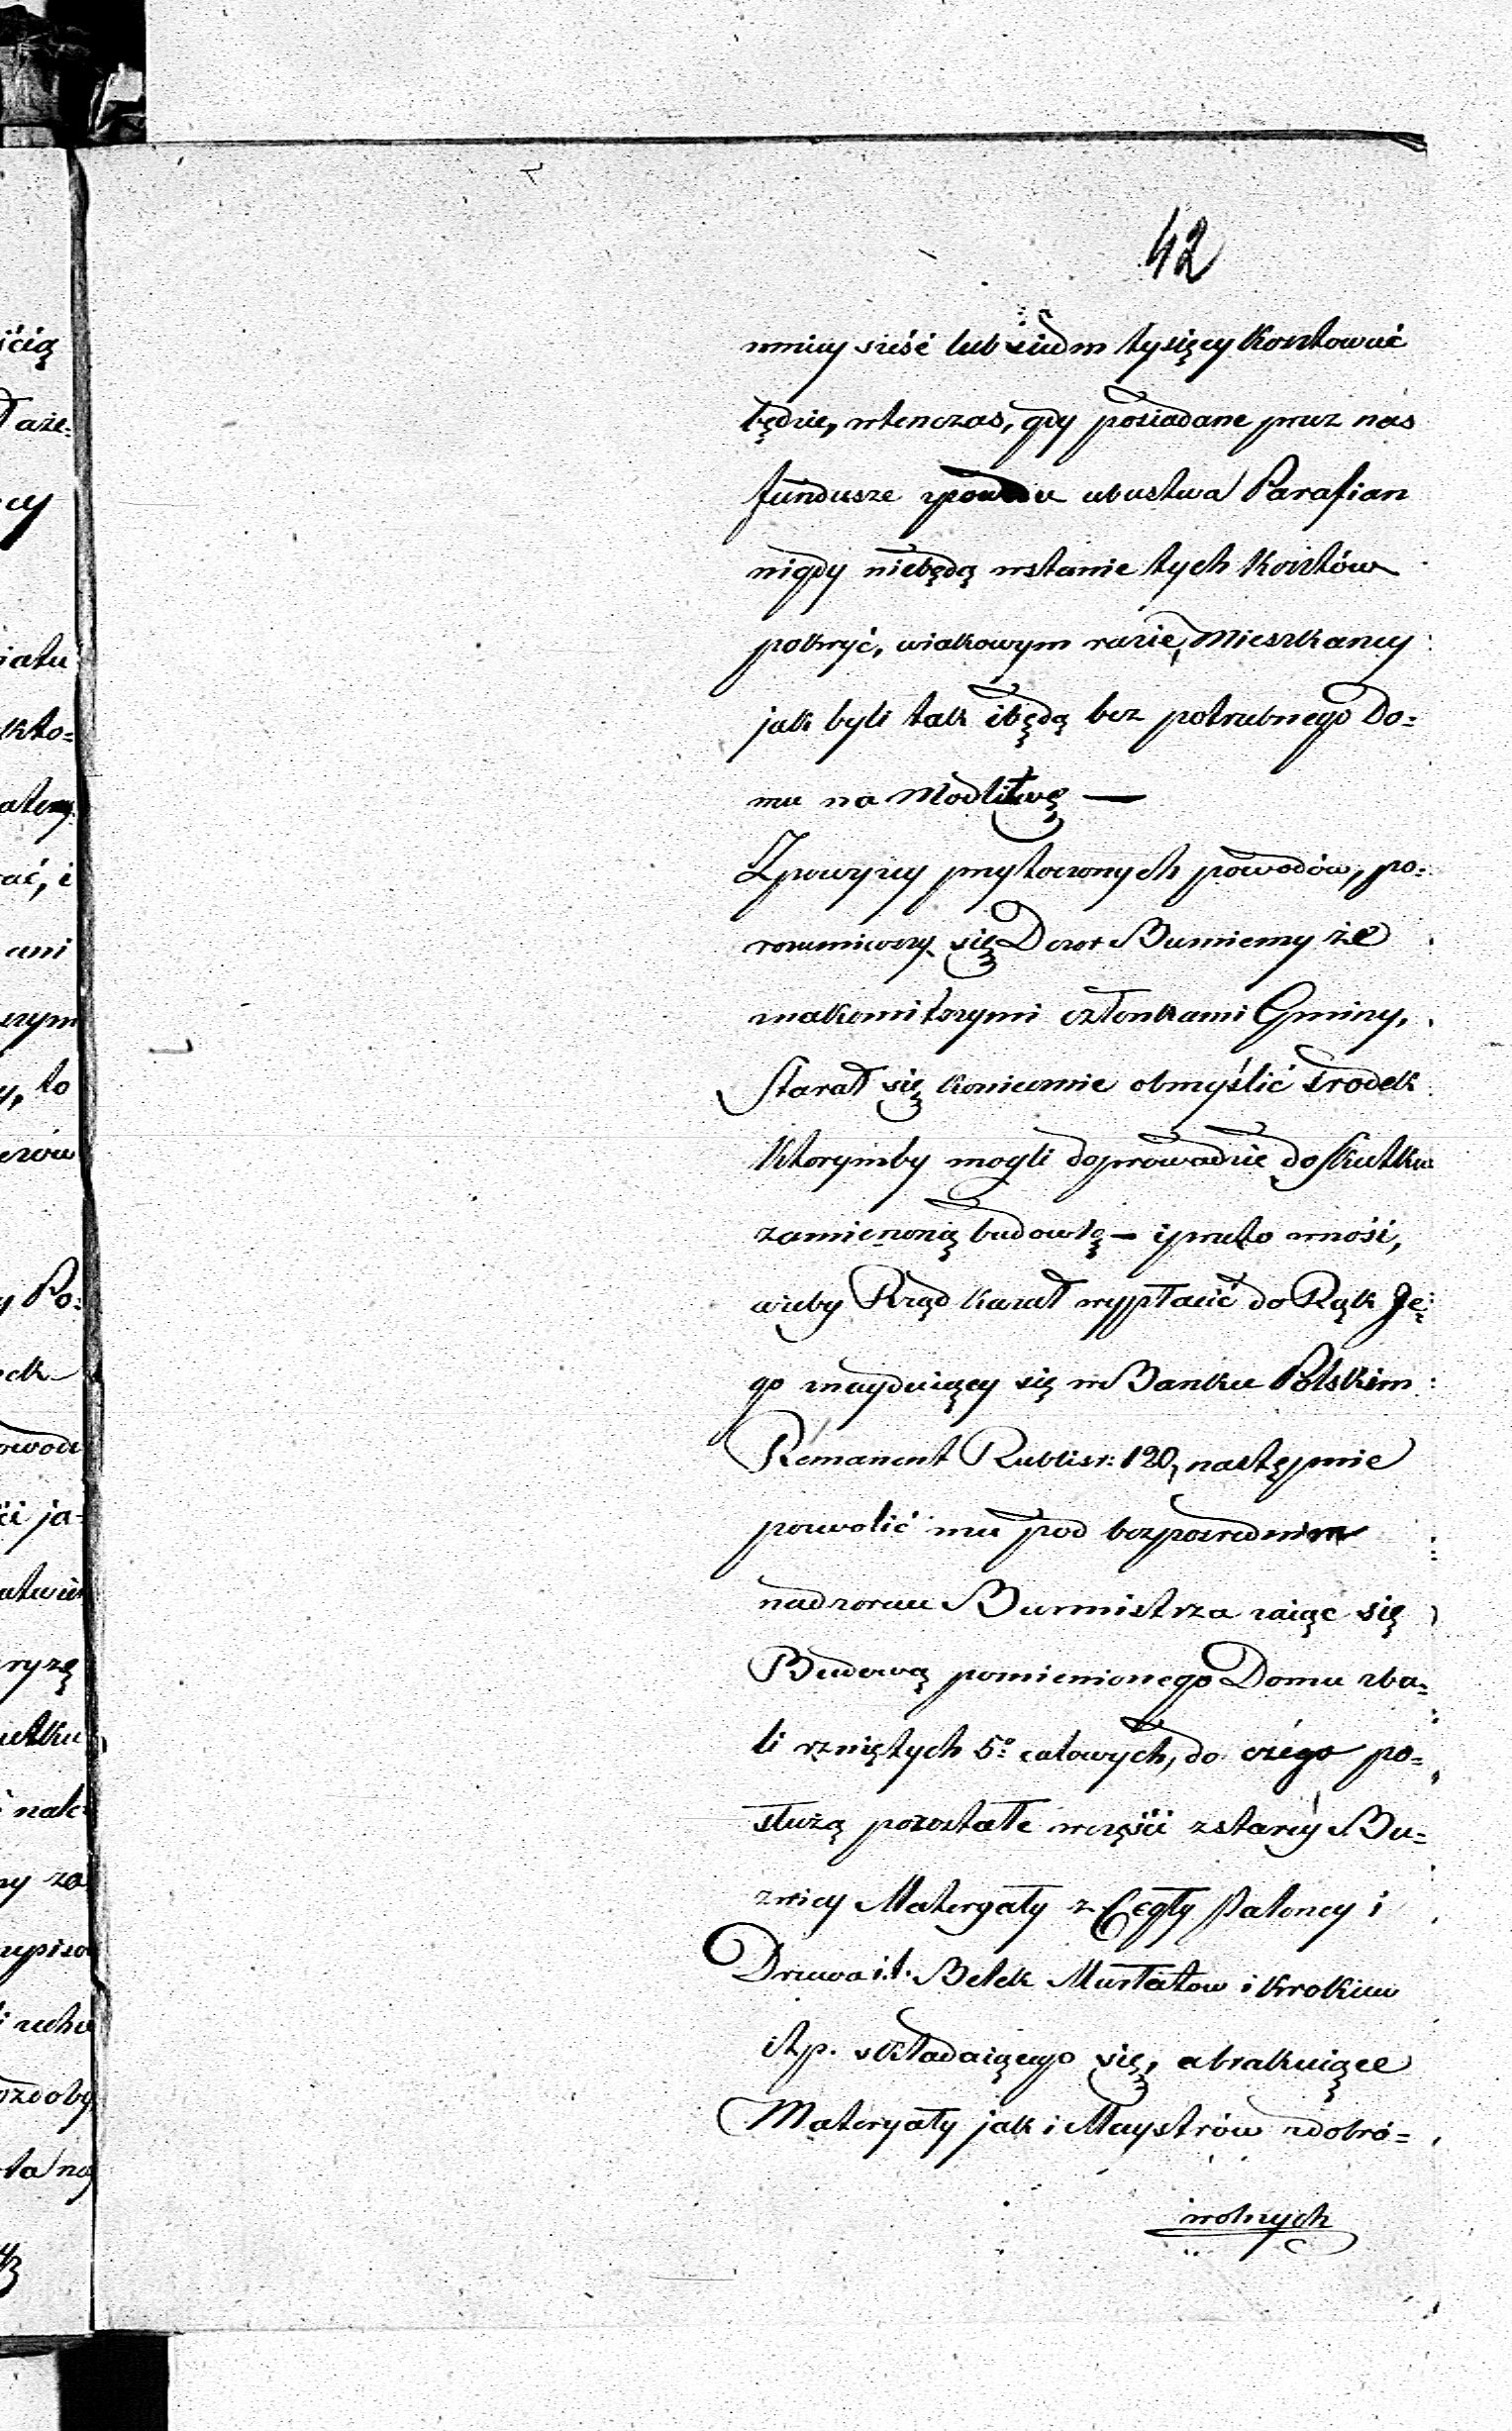 42
mniey sześć lub siedm tysięcy kosztować
będzie, wtenczas, gdy posiadane przez nas
fundusze zpowodu ubustwa Parafian
nigdy niebędą wstanie tych kosztów
pokryć, wiakowym razie, Mieszkancy
jak byli tak ibędą bez potrzebnego Do=
mu na Modlitwę —
Zpowyzey przytoczonych powodów, po=
rozumiewszy się Dozor Bużniczny ze
znakomitszymi członkami Gminy,
Starał się koniecznie obmyślić srodek
ktorymby mogli doprowadzic do skutku
zamierzoną budowlę — iprzeto wnosi,
ażeby Rząd kazał wypłacić do Rąk Je=
go znayduiący się w Banku Polskim
Remanent Rublisr: 120, następnie
pozwolić mu pod bezposrednim
nadzorem Burmistrza zaiąc się
Budową pomienionego Domu zba=
li rzniętych 5º calowych, do czego po=
służą pozostałe wczęści zstarey Bu=
znicy Materyały z Cegły paloney i
Drzewa i.t. Belek Murłatow i krokiew
itp. składaiącego się, abrakuiące
Materyały jak i Maystrów zdobro=
wolnych
icią
aże=
cy
iatu
kto=
ać, i
ani
szym
y, to
y Po=
ck
owodu
ci ja=
ryzę
ny za
ozdoby